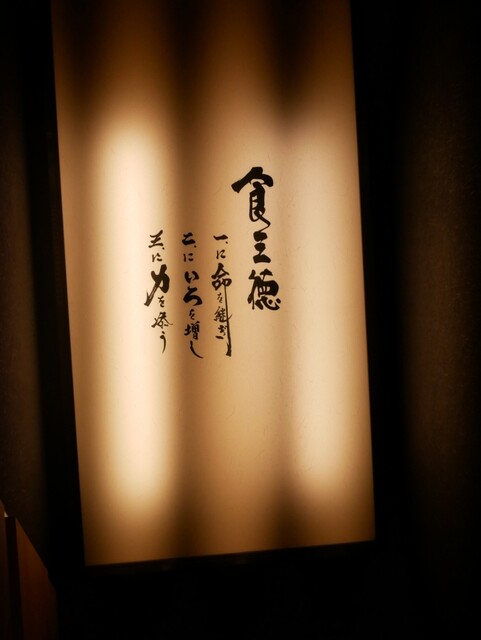 食三徳
一、に命を継ぎ
二、にいろを増し
三、に力を添う